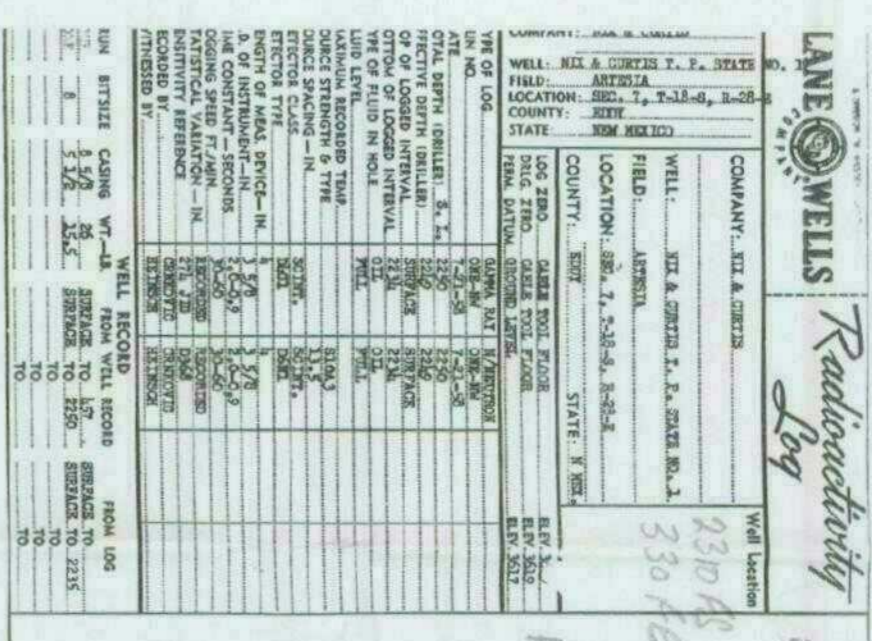 LANE WELLS
COMPANY
Radioactivity
Log
COMPANY: NIX & CURTIS
WELL: NIX & CURTIS T. P. STATE NO. 1
FIELD: ARTESIA
LOCATION: SEC. 7, T-18-S, R-28-E
COUNTY: EDDY
STATE NEW MEXICO
COMPANY: NIX & CURTIS
WELL: NIX & CURTIS T. P. STATE NO. 1
FIELD: ARTESIA
LOCATION: SEC. 7, T-18-S, R-28-E
COUNTY: EDDY STATE: N MEX.
Well Location
2310 FS
330 FE
LOG ZERO CABLE TOOL FLOOR ELEV.
DRLG. ZERO CABLE TOOL FLOOR ELEV. 3619
PERM. DATUM GROUND LEVEL ELEV. 3617
YPE OF LOG GAMMA RAY N/NEUTRON
UN NO. ONE-NW ONE-NW
ATE 7-21-58 7-21-58
OTAL DEPTH (DRILLER) S. L. 2250 2250
FFECTIVE DEPTH (DRILLER) 2249 2249
OP OF LOGGED INTERVAL SURFACE SURFACE
OTTOM OF LOGGED INTERVAL 2234 2234
YPE OF FLUID IN HOLE OIL OIL
LUID LEVEL FULL FULL
AXIMUM RECORDED TEMP.
OURCE STRENGTH & TYPE S1043
OURCE SPACING—IN. 13.5
ETECTOR CLASS SCINT. SCINT.
ETECTOR TYPE D6G1 D6N1
ENGTH OF MEAS. DEVICE—IN. 4 4
.D. OF INSTRUMENT—IN. 3 5/8 3 5/8
IME CONSTANT—SECONDS 2.0-0.9 2.0-0.9
OGGING SPEED FT./MIN. 30-60 30-60
TATISTICAL VARIATION—IN. RECORDED RECORDED
ENSITIVITY REFERENCE 274 JID D968
ECORDED BY CRNKOVIC CRNKOVIC
ITNESSED BY HEINSCH HEINSCH
WELL RECORD
RUN BITSIZE CASING WT.—LB. FROM WELL RECORD FROM LOG
8 5/8 26 SURFACE TO 457 SURFACE TO
8 5 1/2 15.5 SURFACE TO 2250 SURFACE TO 2235
TO TO
TO TO
TO TO